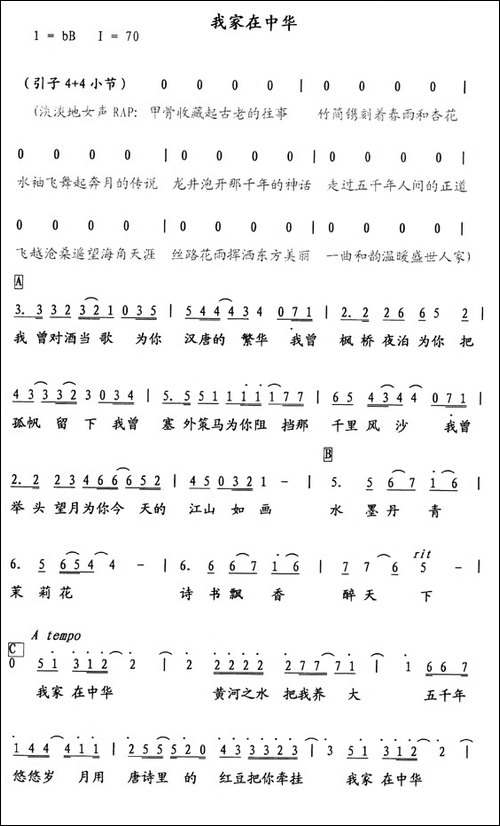 我家在中华
1 = bB I = 70
（引子 4+4 小节） 0 0 0 0 | 0 0 0 0 |
(淡淡地女声 RAP: 甲骨收藏起古老的往事 竹简镌刻着春雨和杏花
0 0 0 0 | 0 0 0 0 | 0 0 0 0 |
水袖飞舞起奔月的传说 龙井泡开那千年的神话 走过五千年人间的正道
0 0 0 0 | 0 0 0 0 | 0 0 0 0 |
飞越沧桑遥望海角天涯 丝路花雨挥洒东方美丽 一曲和韵温暖盛世人家)
A
3. 3 3 2 3 2 1 0 3 5 | 5 4 4 3 4 0 7 1 | 2. 2 2 6 6 5 2 |
我 曾对酒当 歌 为你 汉唐的 繁华 我曾 枫 桥 夜泊 为你 把
4 3 3 3 2 3 0 3 4 | 5. 5 5 1 1 1 1 1 1 7 7 | 6 5 4 3 4 4 0 7 1 |
孤帆 留 下 我曾 塞 外策马为你阻 挡那 千里 风 沙 我曾
B
2. 2 2 3 4 6 6 6 5 2 | 4 5 0 3 2 1 - | 5. 5 6 7 1 6 |
举 头 望月为你今 天的 江山 如 画 水 墨 丹 青
rit
6. 5 6 5 4 4 - | 6. 6 6 7 1 6 | 7 7 6 5 - |
茉 莉 花 诗 书 飘 香 醉 天 下
A tempo
C
0 5 1 3 1 2 2 | 2 2 2 2 2 7 7 7 1 | 1 6 6 7 |
我家 在中华 黄河之水 把我养 大 五千年
1 4 4 4 1 1 | 2 5 5 5 2 0 4 3 3 3 2 3 | 3 5 1 3 1 2 2 |
悠悠岁 月用 唐诗里 的 红豆把你牵挂 我家 在中华